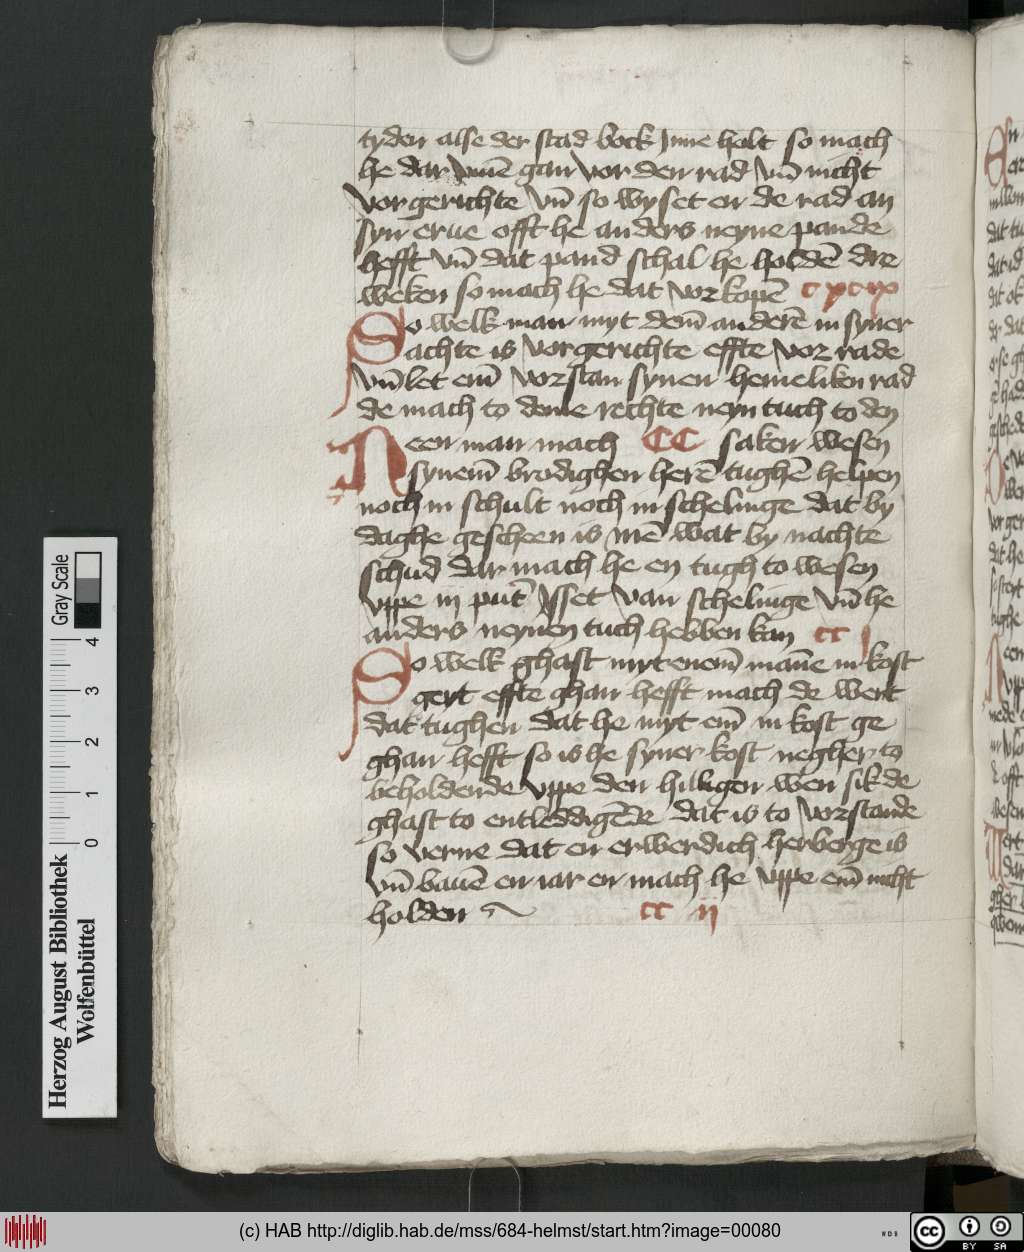 tyden alse der stad bock Inne holt so mach
he dar vmē gan vor den rad vn̄ nicht
vorgerichte vn̄ so wyset en de rad an
syn erue offt he anders neyne pande
hefft vn̄ dat pand schal he holdē dre
weken so mach he dat vorkopē c xc ix
So welk man myt dem̄ anderē in syner
achte is vorgerichte effte vor rade
vn̄ let em̄ vorstan synen hemeliken rad
de mach to deme rechte neyn tuch to den
Neen man mach CC saken wesen
synem̄ brodighen herē tughē helpen
noch in schult noch in schelinge dat by
daghe gescheen is mē wat by nachte
schud dar mach he en tugh to wesen
vppe in put Isset van schelinge vn̄ he
anders neynen tuch hebben kan cc j
So welk ghast myt enem̄ man̄e in kost
gert effte ghan hefft mach de wert
dat tughen dat he myt em̄ in kost ge
ghan hefft so is he syner kost negher to
beholdende vppe den hilligen wen sik de
ghast to entleddigēde dat is to vorstande
so verne dat en erwerdich herberge is
vn̄ bauē en iar en mach he vppe em̄ nicht
holden cc ij
Herzog August Bibliothek
Wolfenbüttel
Gray Scale
0 1 2 3 4
(c) HAB http://diglib.hab.de/mss/684-helmst/start.htm?image=00080
cc BY SA